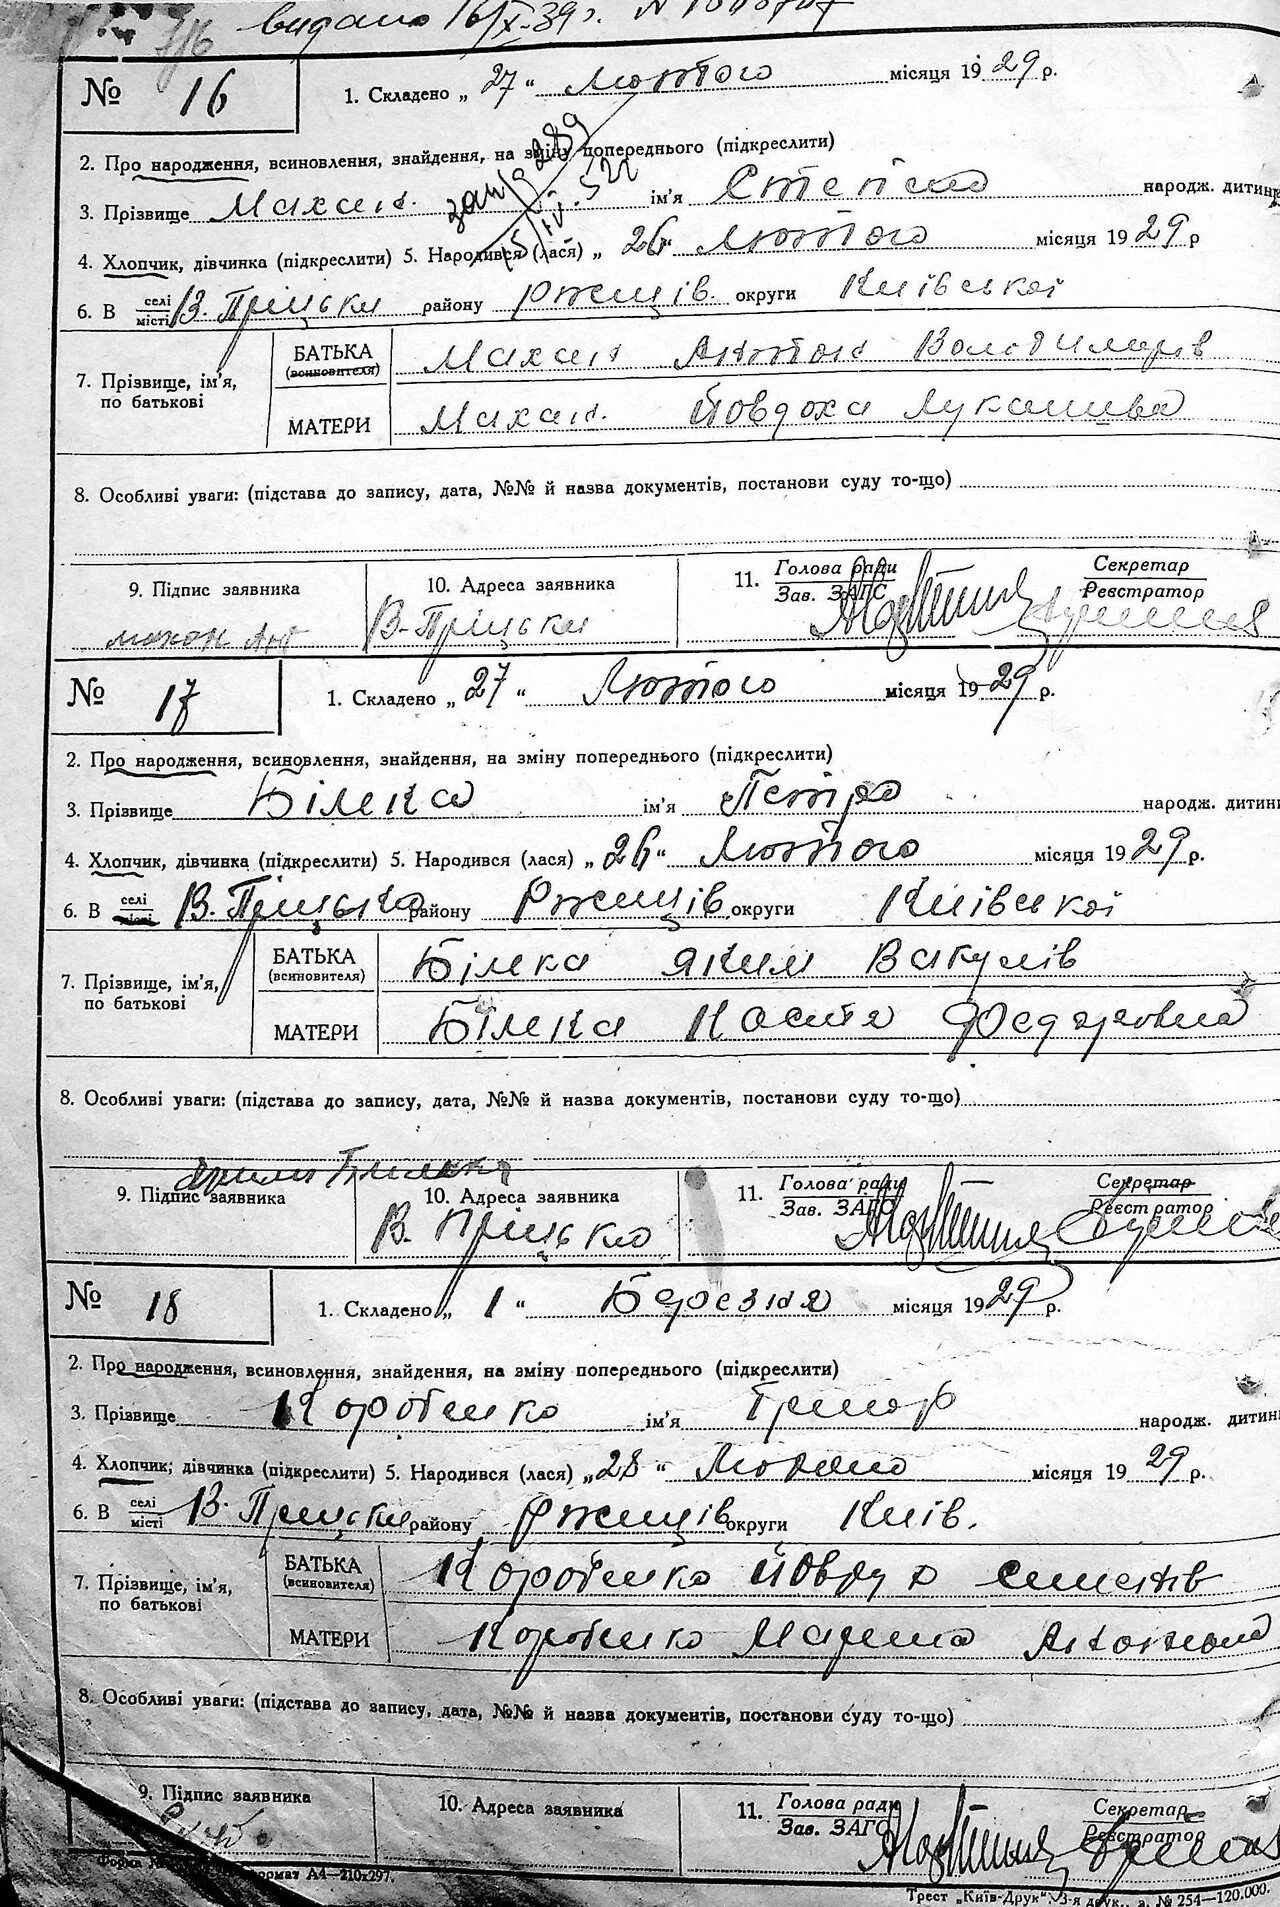 видано 16/X-39 р. №
№ 16
1. Складено „ 27 “ Лютого місяця 1929 р.
2. Про народження, всиновлення, знайдення, на зміну попереднього (підкреслити)
3. Прізвище Махан. ім'я Степан народж. дитини
4. Хлопчик, дівчинка (підкреслити) 5. Народився (лася) „ 26 “ Лютого місяця 1929 р
6. В селі місті В. Пріцьки району Ржищів. округи Київської
7. Прізвище, ім'я, по батькові
БАТЬКА (всиновителя) Махан Антон Володимирів
МАТЕРИ Махан. Йовдоха Лукашива
8. Особливі уваги: (підстава до запису, дата, №№ й назва документів, постанови суду то-що)
9. Підпис заявника 10. Адреса заявника 11. Голова ради Зав. ЗАГС Секретар Реєстратор
махон Ант В-Пріцьки
№ 17
1. Складено „ 27 “ Лютого місяця 1929 р.
2. Про народження, всиновлення, знайдення, на зміну попереднього (підкреслити)
3. Прізвище Білека ім'я Петро народж. дитини
4. Хлопчик, дівчинка (підкреслити) 5. Народився (лася) „ 26 “ Лютого місяця 1929 р.
6. В селі місті В. Пріцько району Ржищів округи Київської
7. Прізвище, ім'я, по батькові
БАТЬКА (всиновителя) Білека Яким Вакулів
МАТЕРИ Білека Федоровна
8. Особливі уваги: (підстава до запису, дата, №№ й назва документів, постанови суду то-що)
9. Підпис заявника 10. Адреса заявника 11. Голова ради Зав. ЗАГС Секретар Реєстратор
В. Пріцько
№ 18
1. Складено „ 1 “ Березня місяця 1929 р.
2. Про народження, всиновлення, знайдення, на зміну попереднього (підкреслити)
3. Прізвище Коробенко ім'я Григор народж. дитини
4. Хлопчик, дівчинка (підкреслити) 5. Народився (лася) „ 28 “ Лютого місяця 1929 р.
6. В селі місті В. Прицьки району Ржищів округи Київ.
7. Прізвище, ім'я, по батькові
БАТЬКА (всиновителя) Коробенко Йовдох
МАТЕРИ Коробенко Марина Антоновна
8. Особливі уваги: (підстава до запису, дата, №№ й назва документів, постанови суду то-що)
9. Підпис заявника 10. Адреса заявника 11. Голова ради Зав. ЗАГС Секретар Реєстратор
Форма № формат А4—210x297.
Трест „Київ-Друк“. 3-я друк., з. № 254—120.000.